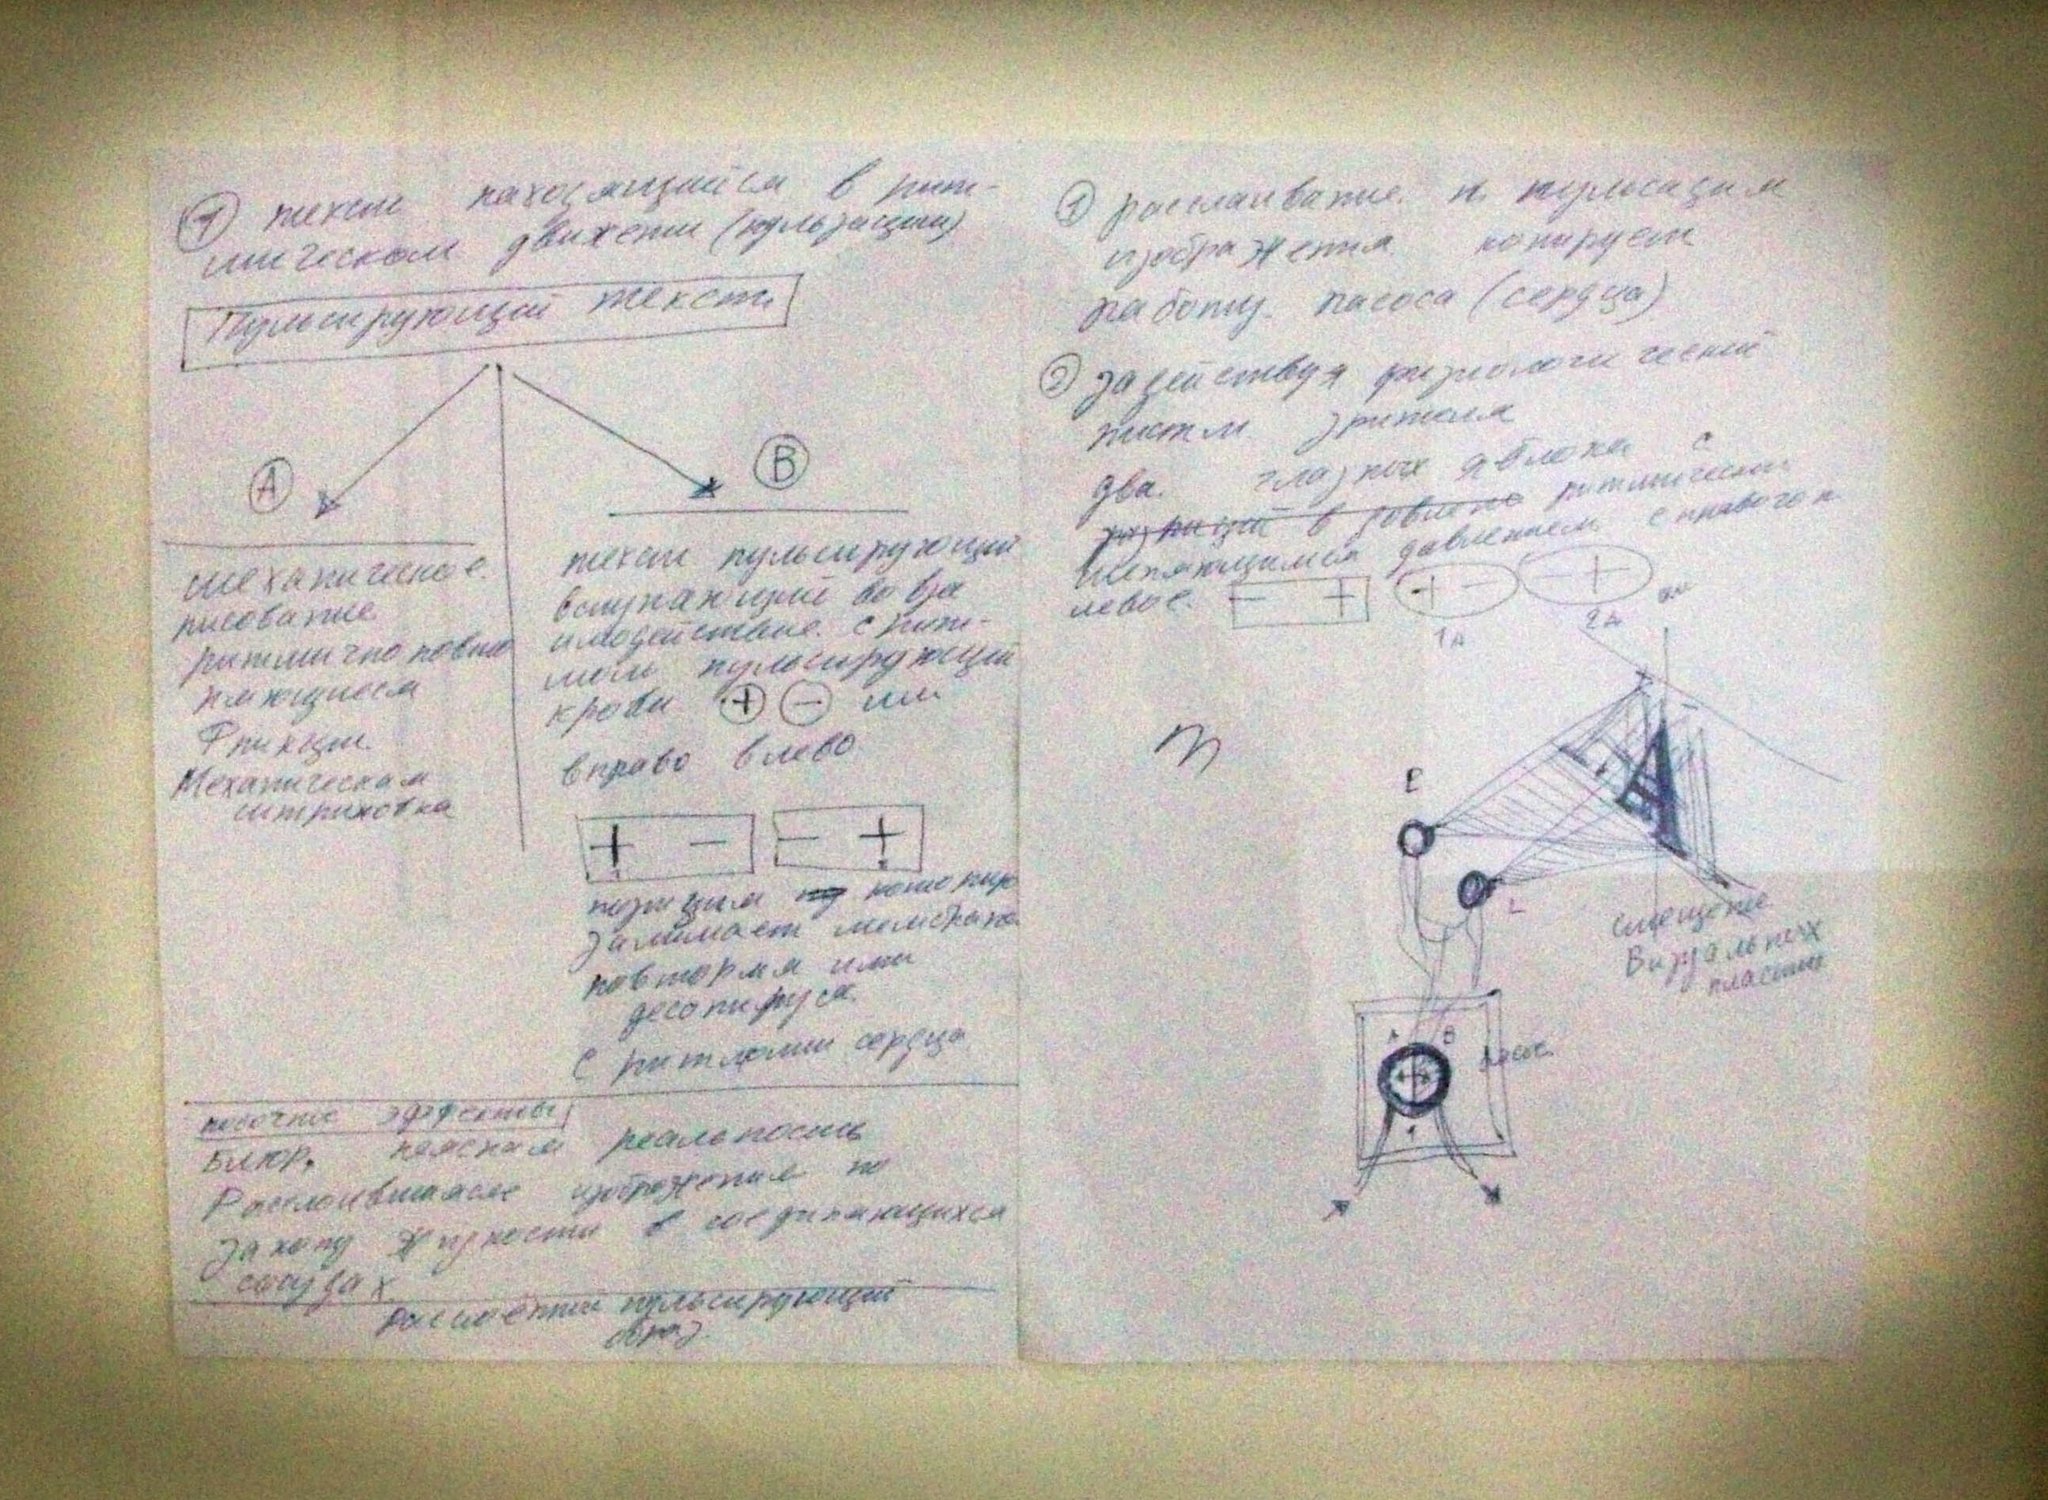 ① текст находящийся в рит-
мическом движении (пульзации)
Пульсирующий текст
A
B
механическое
рисование
ритмично повто
ряющиеся
Фрикции
Механическая
штриховка
текст пульсирующий
вступающий во вза
имодействие с рит-
мом пульсирующей
крови + − или
вправо влево
+ −
− +
позиция которую
занимает мембрана
повторяя или
десопируя
с ритмами сердца
побочные эффекты
Блюр. неясная реальность
Расслоившаяся изображения по
закону жидкости в соединяющихся
сосудах
Рассмоённый пульсирующий
образ
① расслаивание и пульсация
изображения копирует
работу насоса (сердца)
② задействуя физиологический
ритм зрителя
два глазных яблока с
ритмически
меняющимся давлением с правого н
левое − + + − − +
1А 2А
R
L
смещение
Визуальных
пластин
А В насос
1